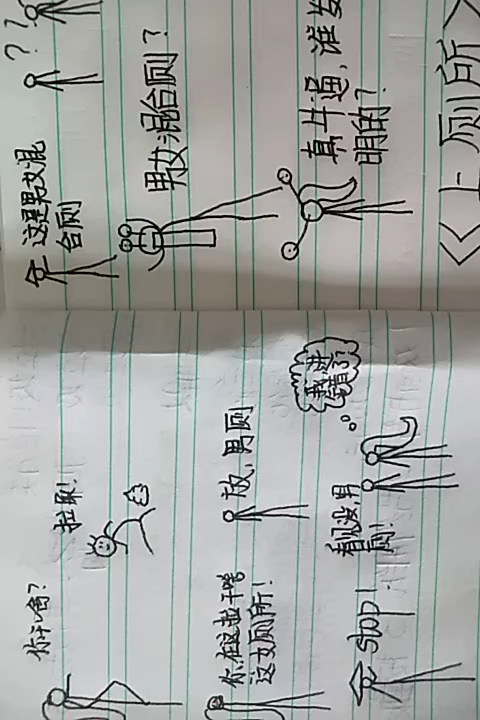 你干啥?
这是男女混
合厕
??
你在这拉干啥
这女厕所!
放,男厕
男女混合厕?
stop!
看见没,男
厕!
我讲
错了?
真牛逼,谁发
明的?
《上厕所》